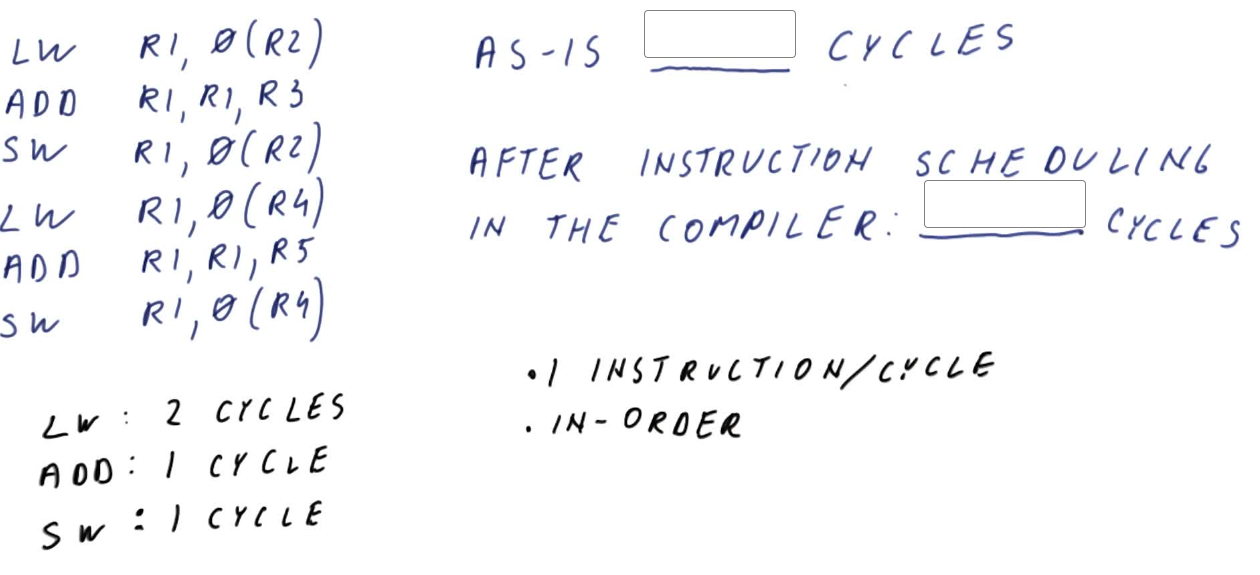 LW R1, Ø(R2)
ADD R1, R1, R3
SW R1, Ø(R2)
LW R1, Ø(R4)
ADD R1, R1, R5
SW R1, Ø(R4)
LW: 2 CYCLES
ADD: 1 CYCLE
SW: 1 CYCLE
AS-IS CYCLES
AFTER INSTRUCTION SCHEDULING
IN THE COMPILER: CYCLES
• 1 INSTRUCTION/CYCLE
• IN-ORDER